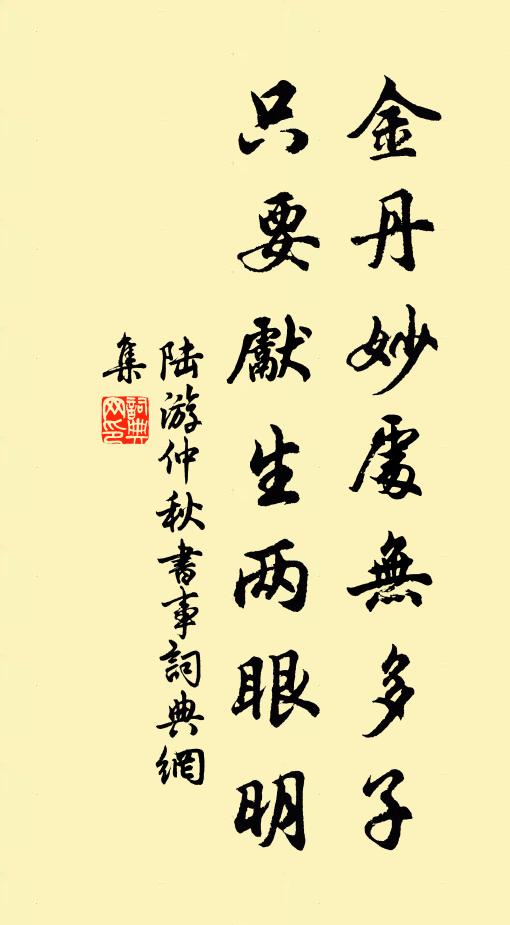 金丹妙處無多子
只要獻生两眼明
陆游仲秋書事詞典網
集
詞典网印